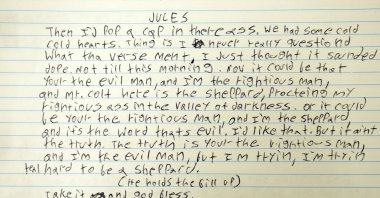 JULES
Then I'd pop a cap in there ass. We had some cold
cold hearts. Thing is I never really questiond
what tha verse ment, I just thought it sounded
dope. Not till this morning. Now it could be that
your the evil man, and I'm the rightious man,
and mr. colt here is the sheppard, Protecting my
rightious ass in the valley of darkness. Or it could
be your the rightious man, and I'm the sheppard,
and it's the word thats evil. I'd like that. But it aint
the truth. The truth is your the rightious man,
and I'm the evil man, but I'm tryin, I'm tryin
real hard to be a sheppard.
(He holds the bill up)
Take it and god bless.